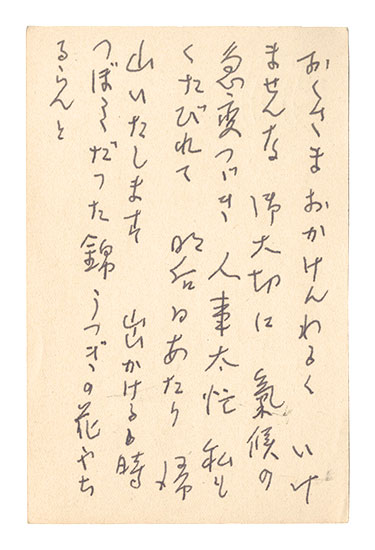 おくさま おかげんわるく いけ
ませんな 御大切に 氣候の
急変つゞき 人事太忙 私も
くたびれて 明后日あたり 帰
山いたします 出かける時
つぼみだった錦うつぎの花や
るらんと